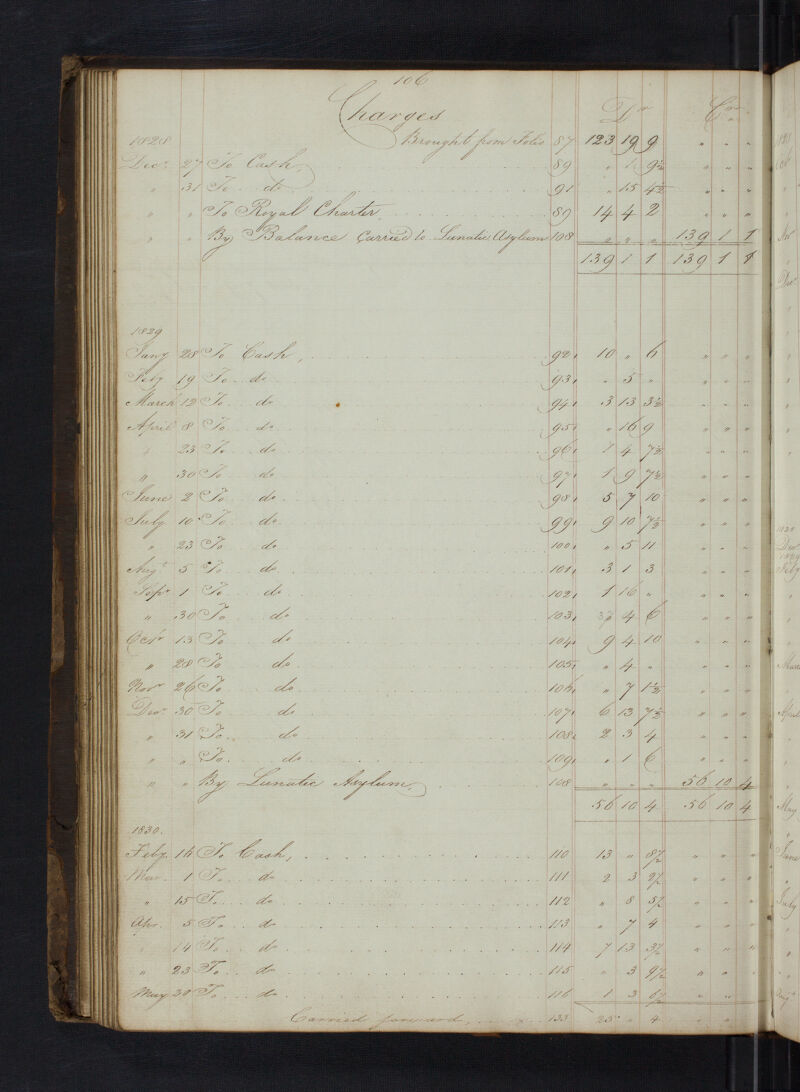 106
Charges Dr Cr
1828 Brought from Folio 87 123 19 9 " " "
Decr 27 To Cash, 89 " 1 9½ " " "
" 31 To do 91 " 15 4½ " " "
" " To Royal Charter, 89 14 4 2 " " "
" " By Balance Carried to Lunatic Asylum 108 " " " 139 1 1
139 1 1 139 1 1
1829
Jany 28 To Cash, 92 10 " 6 " " "
Feby 19 To do 93 " 5 " " " "
March 12 To do 94 3 13 3½ " " "
April 8 To do 95 " 16 9 " " "
" 23 To do 96 1 4 7½ " " "
" 30 To do 97 1 9 7½ " " "
June 2 To do 98 5 7 10 " " "
July 10 To do 99 9 10 7½ " " "
" 23 To do 100 " 5 11 " " "
Augt 5 To do 101 3 1 3 " " "
Sepr 1 To do 102 1 16 " " " "
" 30 To do 103 4 6 " " "
Octr 13 To do 104 9 4 10 " " "
" 28 To do 105 " 4 " " " "
Novr 26 To do 106 " 7 1½ " " "
Decr 30 To do 107 6 13 7½ " " "
" 31 To do 108 2 3 4 " " "
" " To do 109 " 1 6 " " "
" " By Lunatic Asylum, 108 " " " 56 10 4
56 10 4 56 10 4
1830.
Feby 14 To Cash, 110 13 " 8½ " " "
Mar. 1 To do 111 2 3 2½ " " "
" 15 To do 112 " 8 5½ " " "
Apr. 5 To do 113 " 7 4 " " "
" 14 To do 114 7 13 3½ " " "
" 23 To do 115 " 3 9½ " " "
May 30 To do 116 1 3 6½ " " "
Carried forward, 133 25 " 4 " " "